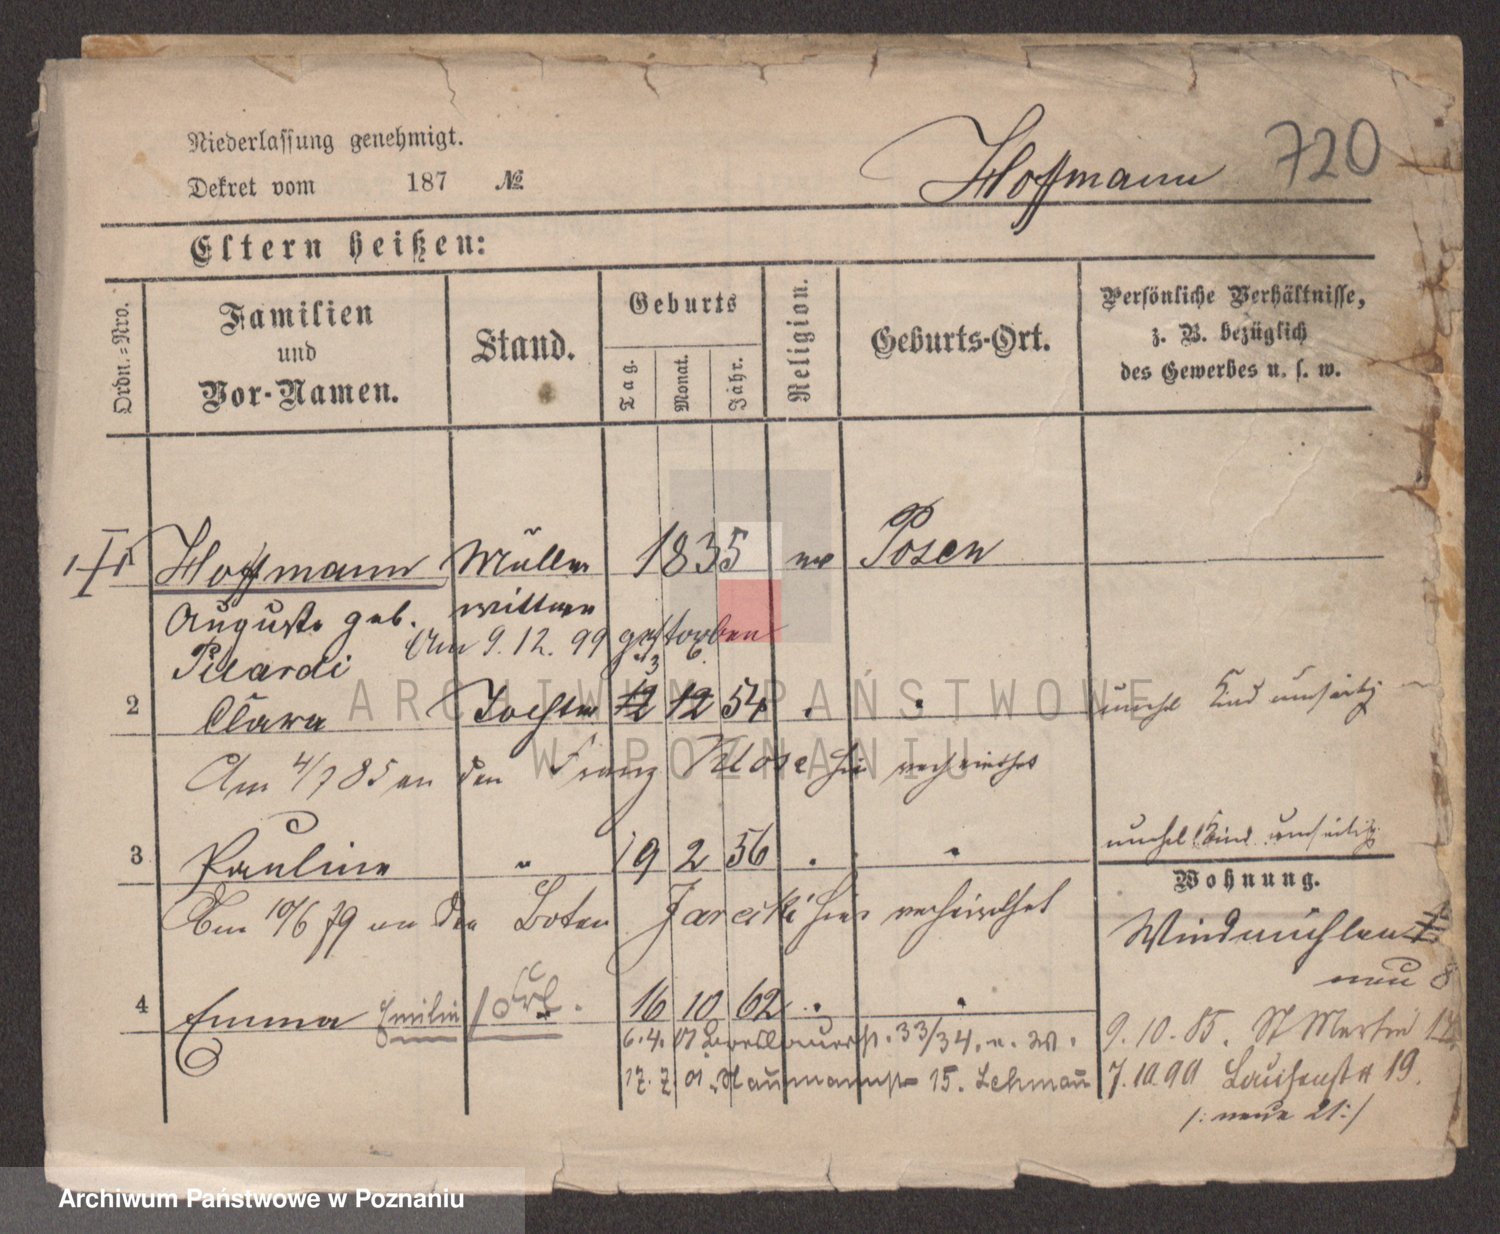 Niederlassung genehmigt.
Dekret vom 187 №
Hoffmann 720
Eltern heißen:
Ordn.-Nro.
Familien und Vor-Namen.
Stand.
Geburts
Tag. Monat. Jahr.
Religion.
Geburts-Ort.
Persönliche Verhältnisse,
z. B. bezüglich
des Gewerbes u. s. w.
Hoffmann Müller 1835 ev Posen
Auguste geb. wittwe
Am 9.12.99 gestorben
Pilardi
3 6.
2 Clara Tochter 12 12 54 . "
unehel Kind umseitig
Am 4/7 85 an den Franz Klose hier verheirathet
3 Pauline " 19 2 56 . "
unehel Kind umseitig
Am 10/6 79 an den Boten Jarecki hier verheirathet
Wohnung.
Windmühlen
neu 8
4 Emma Emilie 16 10 62 . "
6.4.01 Breslauerst. 33/34. u. W.
9.10.85. St Martin
17.7.01. Naumannst 15. Lehmann
7.10.90 19.
/: neue 21:/
ARCHIWUM PAŃSTWOWE
W POZNANIU
Archiwum Państwowe w Poznaniu